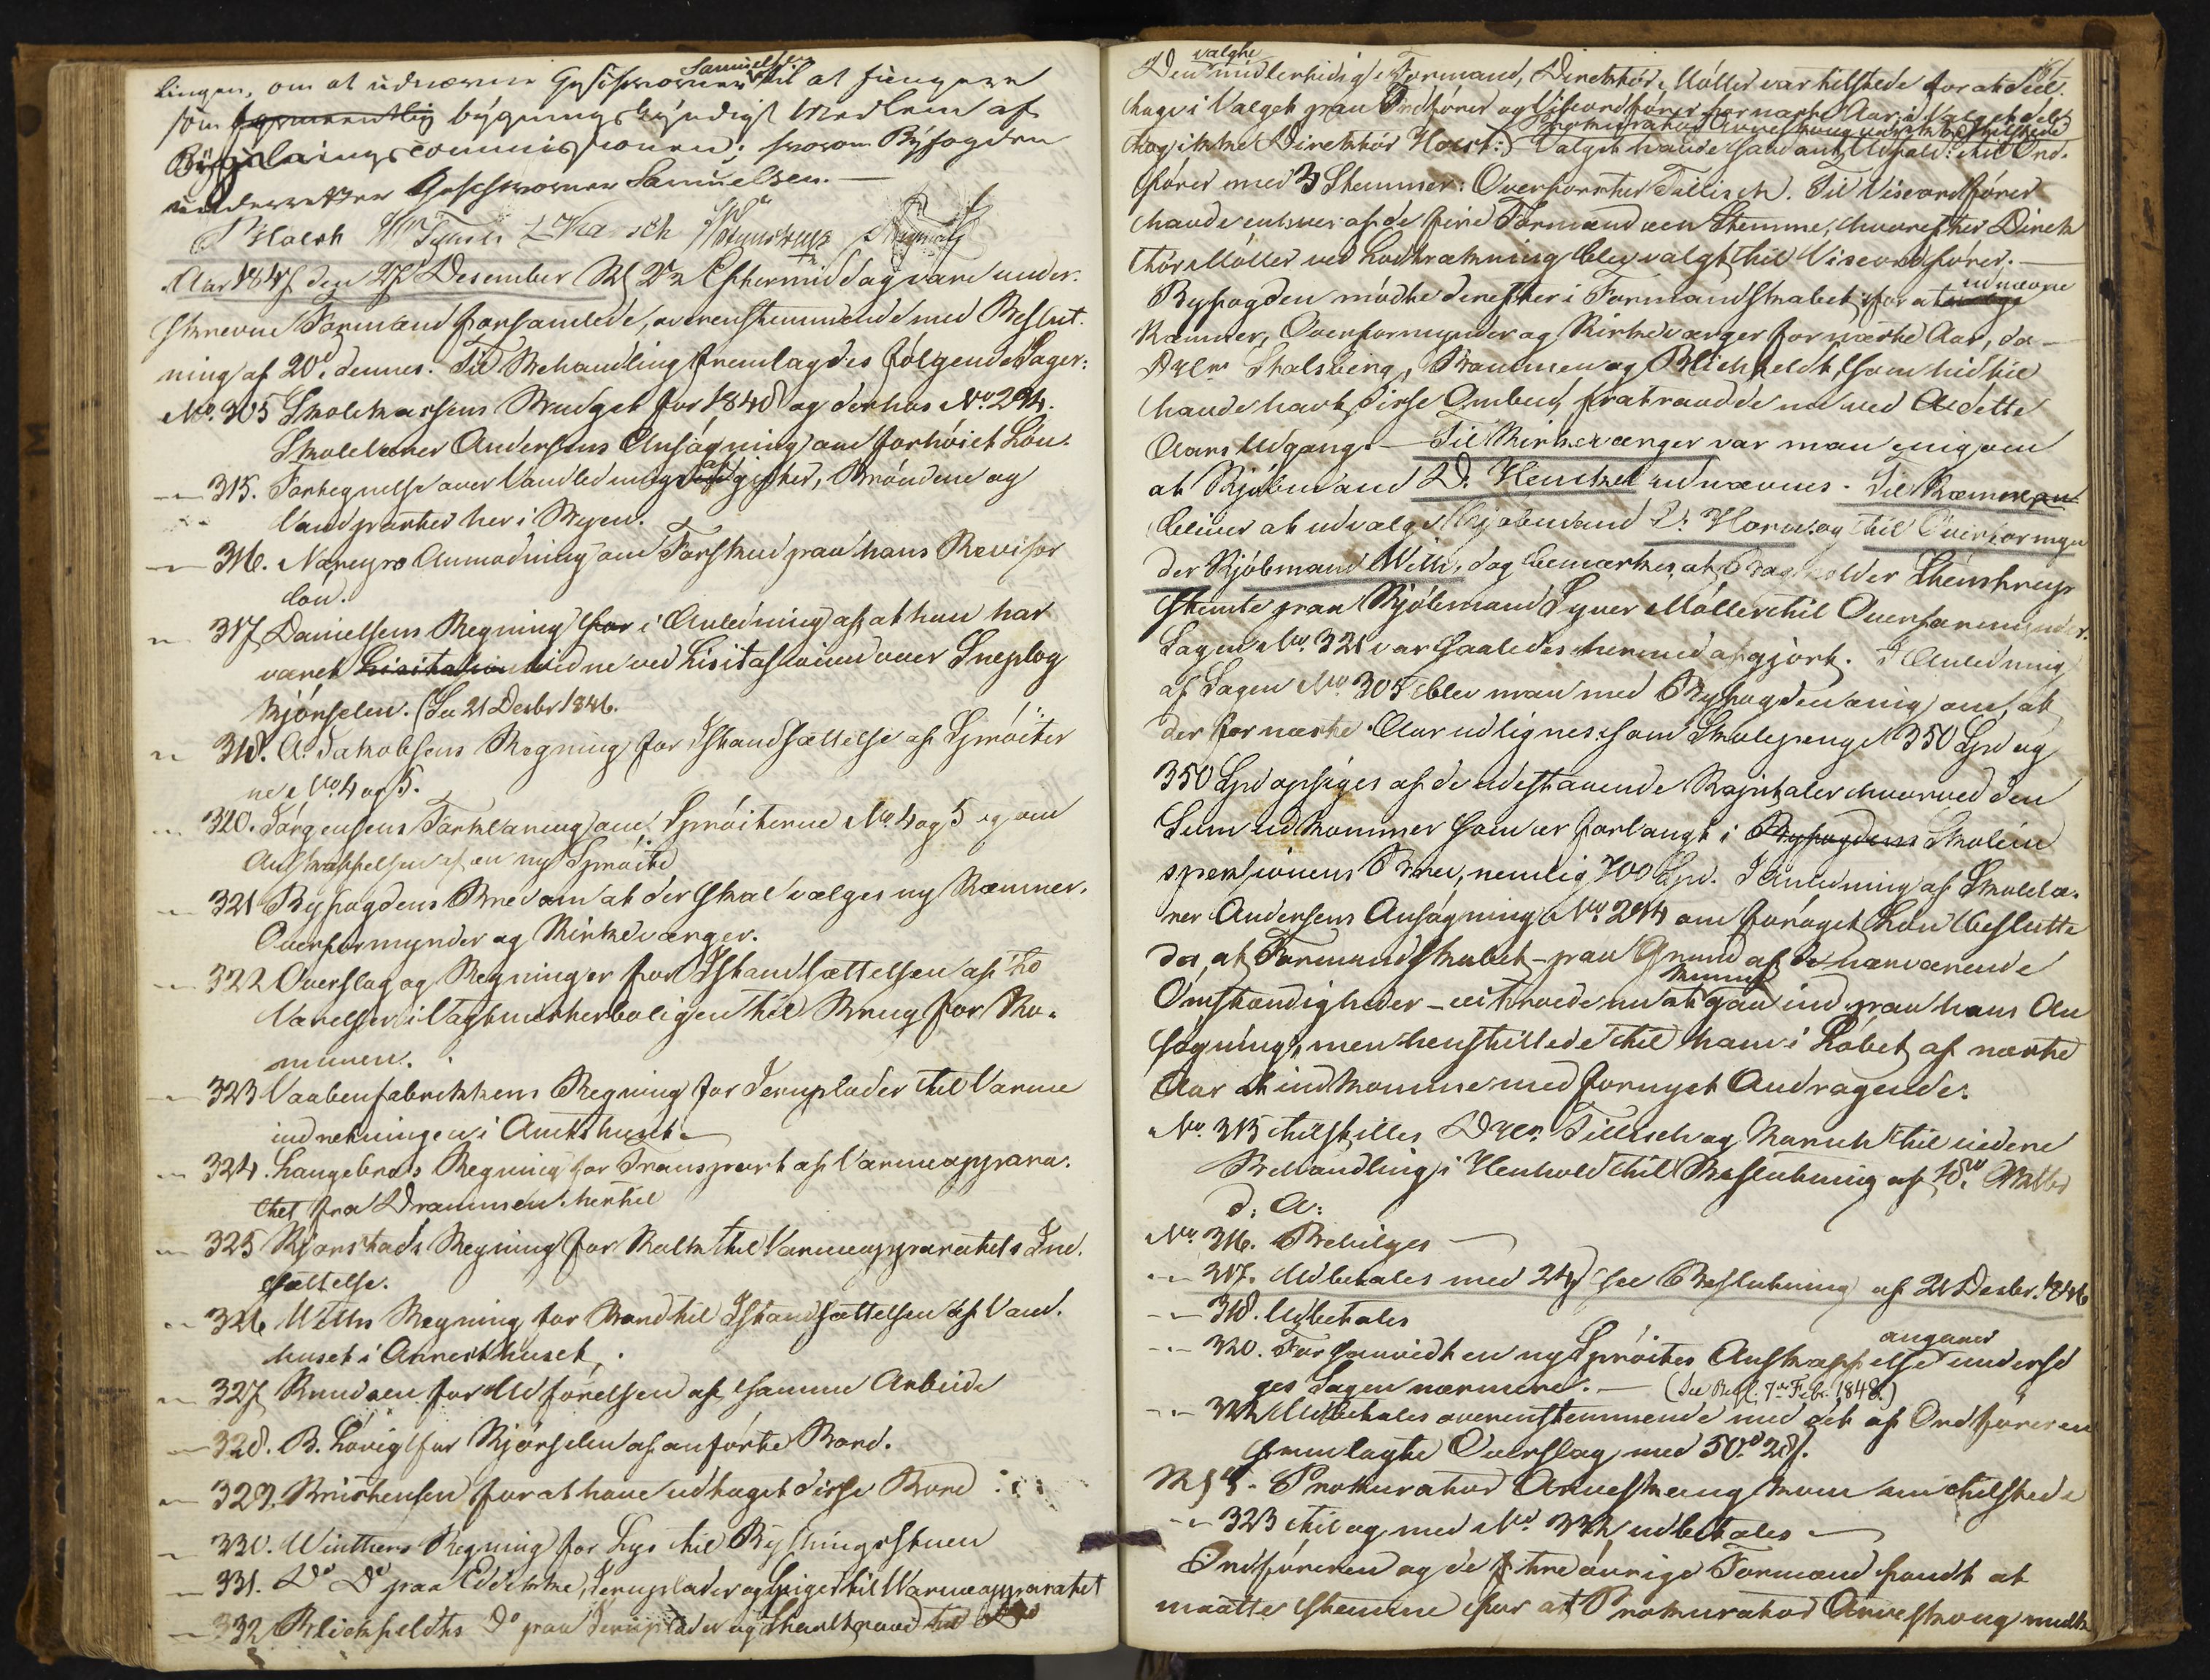 lingen, om at udnævne Geschworner Samuelsen til at fungere
som formentlig bygningskyndigt Medlem af
Reguleringscommissionen; hvorom Byfogden
underretter Geschworner Samuelsen. —
P Holst
Aar 1847 den 27de Desember Kl 2½ Eftermiddag vare under-
skrevne Formænd forsamlede, overenstemmende med Beslut-
ning af 20d. dennes. Til Behandling fremlagdes følgende Sager:
No. 305 Skolekassens Budget for 1848 og derhos No. 294.
Skolelærer Andersens Ansøgning om forhøiet Løn.
— 315. Fortegnelse over Vandledningsafgifter, Brøndene og
Vandposter her i Byen.
— 316. Anmodning om Forskud paa hans Revisor
løn.
— 317 Danielsens Regning for i Anledning af at han har
været Lisitation Vidne ved Lisitasionen over Sneplog
kjørselen. (Se 21 Desbr 1846.
— 318. A. Jakobsens Regning for Istandsættelse af Sprøiter
ne No. 4 og 5.
— 320. Jørgensens Forklaring om Sprøiterne No. 4 og 5 og om
Anskaffelsen af en ny Sprøite
— 321 Byfogdens Brev om at der skal vælges ny Kæmner,
Overformynder og Kirkeværger.
— 322 Overslag og Regninger for Istandsættelsen af to
Værelser i Vagtmesterboligen til Brug for Ko-
munen.
— 323 Vaabenfabrikkens Regning for Jernplader til Varme
indretningen i Amtshuset —
— 324. Langebros Regning for Transport af Varmeappara-
tet fra Drammen hertil
— 325 Kjørstads Regning for Kalk til Varmeapparatets Ind-
sættelse.
— 326 Wilths Regning for Bord til Istandsættelsen af Vand-
huset i Arresthuset.
— 327 Knudsen for Udførelsen af samme Arbeide
— 328. B. Løvig for Kjørselen af anførte Bord.
— 329. Kristensen for at have udtaget disse Bord
— 330. Winthers Regning for Lys til Bythingsstuen
— 331. Do Do paa Eddikke, Jernplader og Spiger til Varmeapparatet
— 332 Blichfeldts Do paa Jernplader og
Den valgte midlertidige Formand, Direktør Møller var tilstede for at deel-
tage i Valget paa Ordfører og Viseordfører for næste Aar; i Valget del-
tog ikke Direktør Holst: Prokurator Arveskoug var ikke tilstede Valget havde saadant Udfald: til Ord-
fører med 3 Stemmer: Overførster Tillisch. Til Viseordfører
havde enhver af de fire Formænd een Stemme, hvorefter Direk
tør Møller ved Lodtrækning blev valgt til Viseordfører. —
Byfogden mødte derefter i Formandskabet for at vælge udnævne
Kæmner, Overformynder og Kirkeværger for næste Aar, da —
DHlrr Skalsberg, Brammen og Blichfeldt, som hidtil
havde havt disse Ombud, fratraadde nu ved dette
Aars Udgang. — Til Kirkeværger var man enig om
at Kjøbmand D. Hentzel udnævnes. Til Kæmner
bliver at udvælge Kjøbmand D. Horn og til Overformyn
der Kjøbmand Wilth, dog bemærkes, at Steenstrup
stemte paa Kjøbmand Syver Møller til Overformynder.
Sagen No. 321 var saaledes hermed afgjort. I Anledning
af Sagen No. 305 blev man med Byfogden enig om, at
der for næste Aar udlignes som Skolepenge 350 Spd og
350 Spd opsiges af de udestaaende Kapitaler hvorved den
Sum udkommer som er forlangt i Byfogdens Skolein
speksionens Brev, nemlig 700 Spd. I Anledning af Skolelæ-
rer Andersens Ansøgning No. 294 om forøget Løn beslutte
des, at Formandskabet — paa Grund af de nærværende
Omstændigheder — ei troede nu at kunne gaa ind paa hans An
søgning, men henstillede til ham i Løbet af næste
Aar at indkomme med fornyet Andragende.
No. 315 tilstilles DHlrr Tillisch og Karsch til videre
Behandling i Henhold til Beslutning af 18de Oktbr
d: A:
No. 316. Bevilges —
— 317. Udbetales med 24 ß see Beslutning af 21 Desbr. 1846
— 318. Udbetales
— 320. Forsaavidt en ny Sprøites Anskaffelse angaaer undersø
ges Sagen nærmere. — (See Besl. 7de Febr. 1848.)
— 322 Udbetales overenstemmende med det af Ordføreren
fremlagte Overslag med 50. 28 ß.
Kl 4. Prokurator Arveskoug kom nu tilstede
— 323 til og med No. 332 udbetales —
Ordføreren og de tre øvrige Formænd fandt at
maatte stemme for at Prokurator Arveskoug mulkt